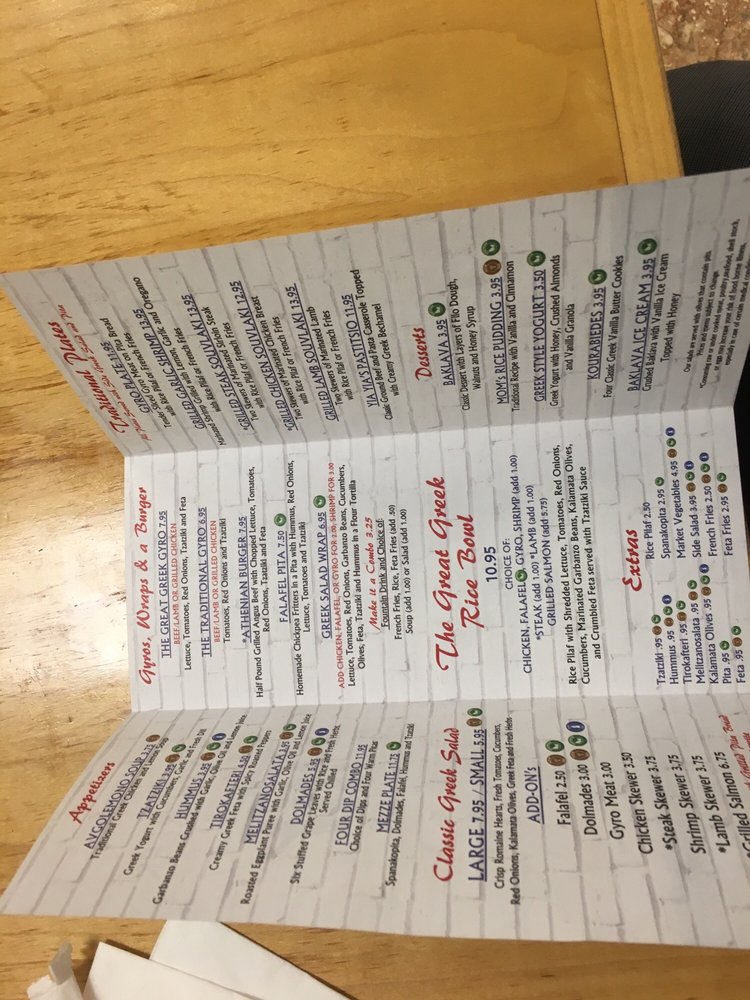 Appetizers
AVGOLEMONO SOUP 3.75
Traditional Greek Chicken and Lemon Soup
TZATZIKI 3.95
Greek Yogurt with Cucumbers, Garlic, and Fresh Dill
HUMMUS 3.95
Garbanzo Beans Crushed with Garlic, Olive Oil and Lemon Juice
TIROKAFTERI 5.50
Creamy Greek Feta with Spicy Roasted Peppers
MELITZANOSALATA 3.95
Roasted Eggplant Puree with Garlic, Olive Oil and Lemon Juice
DOLMADES 5.95
Six Stuffed Grape Leaves with Rice and Fresh Herbs,
Served Chilled
FOUR DIP COMBO 11.95
Choice of Dips and Four Warm Pitas
MEZZE PLATE 11.75
Spanakopita, Dolmades, Falafel, Hummus and Tzatziki
Classic Greek Salad
LARGE 7.95 / SMALL 5.95
Crisp Romaine Hearts, Fresh Tomatoes, Cucumbers,
Red Onions, Kalamata Olives, Greek Feta and Fresh Herbs
ADD-ON's
Falafel 2.50
Dolmades 3.00
Gyro Meat 3.00
Chicken Skewer 3.50
*Steak Skewer 3.75
Shrimp Skewer 3.75
*Lamb Skewer 6.75
*Grilled Salmon
Gyros, Wraps & a Burger
THE GREAT GREEK GYRO 7.95
BEEF/LAMB OR GRILLED CHICKEN
Lettuce, Tomatoes, Red Onions, Tzatziki and Feta
THE TRADITIONAL GYRO 6.95
BEEF/LAMB OR GRILLED CHICKEN
Tomatoes, Red Onions and Tzatziki
*ATHENIAN BURGER 7.95
Half Pound Grilled Angus Beef with Chopped Lettuce, Tomatoes,
Red Onions, Tzatziki and Feta
FALAFEL PITA 7.50
Homemade Chickpea Fritters in a Pita with Hummus, Red Onions,
Lettuce, Tomatoes and Tzatziki
GREEK SALAD WRAP 6.95
ADD CHICKEN, FALAFEL, OR GYRO FOR 2.00, SHRIMP FOR 3.00
Lettuce, Tomatoes, Red Onions, Garbanzo Beans, Cucumbers,
Olives, Feta, Tzatziki and Hummus in a Flour Tortilla
Make it a Combo 3.25
Fountain Drink and Choice of:
French Fries, Rice, Feta Fries (add .50)
Soup or Salad (add 1.00)
The Great Greek
Rice Bowl
10.95
CHOICE OF:
CHICKEN, FALAFEL, GYRO, SHRIMP (add 1.00)
*STEAK (add 1.00) *LAMB (add 4.00)
GRILLED SALMON (add 5.75)
Rice Pilaf with Shredded Lettuce, Tomatoes, Red Onions,
Cucumbers, Marinated Garbanzo Beans, Kalamata Olives,
and Crumbled Feta served with Tzatziki Sauce
Extras
Tzatziki .95
Hummus .95
Tirokafteri .95
Melitzanosalata .95
Kalamata Olives .95
Pita .95
Feta .95
Rice Pilaf 2.50
Spanakopita 2.95
Market Vegetables 4.95
Side Salad 3.95
French Fries 2.50
Feta Fries 2.95
Traditional Plates
GYRO PLATE
GRILLED SHRIMP 13.95
*GRILLED STEAK SOUVLAKI 12.95
*Grilled Skewers of Marinated Sirloin Steak
with Rice Pilaf or French Fries
GRILLED CHICKEN SOUVLAKI 12.95
Two Skewers of Marinated Chicken Breast
with Rice Pilaf or French Fries
*GRILLED LAMB SOUVLAKI 13.95
Two Skewers of Marinated Lamb
with Rice Pilaf or French Fries
YIA YIA'S PASTITSIO 11.95
Classic Ground Beef and Pasta Casserole Topped
with Creamy Greek Bechamel
Desserts
BAKLAVA 3.95
Classic Dessert with Layers of Fillo Dough,
Walnuts and Honey Syrup
MOM'S RICE PUDDING 3.95
Traditional Recipe with Vanilla and Cinnamon
GREEK STYLE YOGURT 3.50
Greek Yogurt with Honey, Crushed Almonds
and Vanilla Granola
KOURABIEDES 3.95
Four Classic Greek Vanilla Butter Cookies
BAKLAVA ICE CREAM 3.95
Crushed Baklava with Vanilla Ice Cream
Topped with Honey